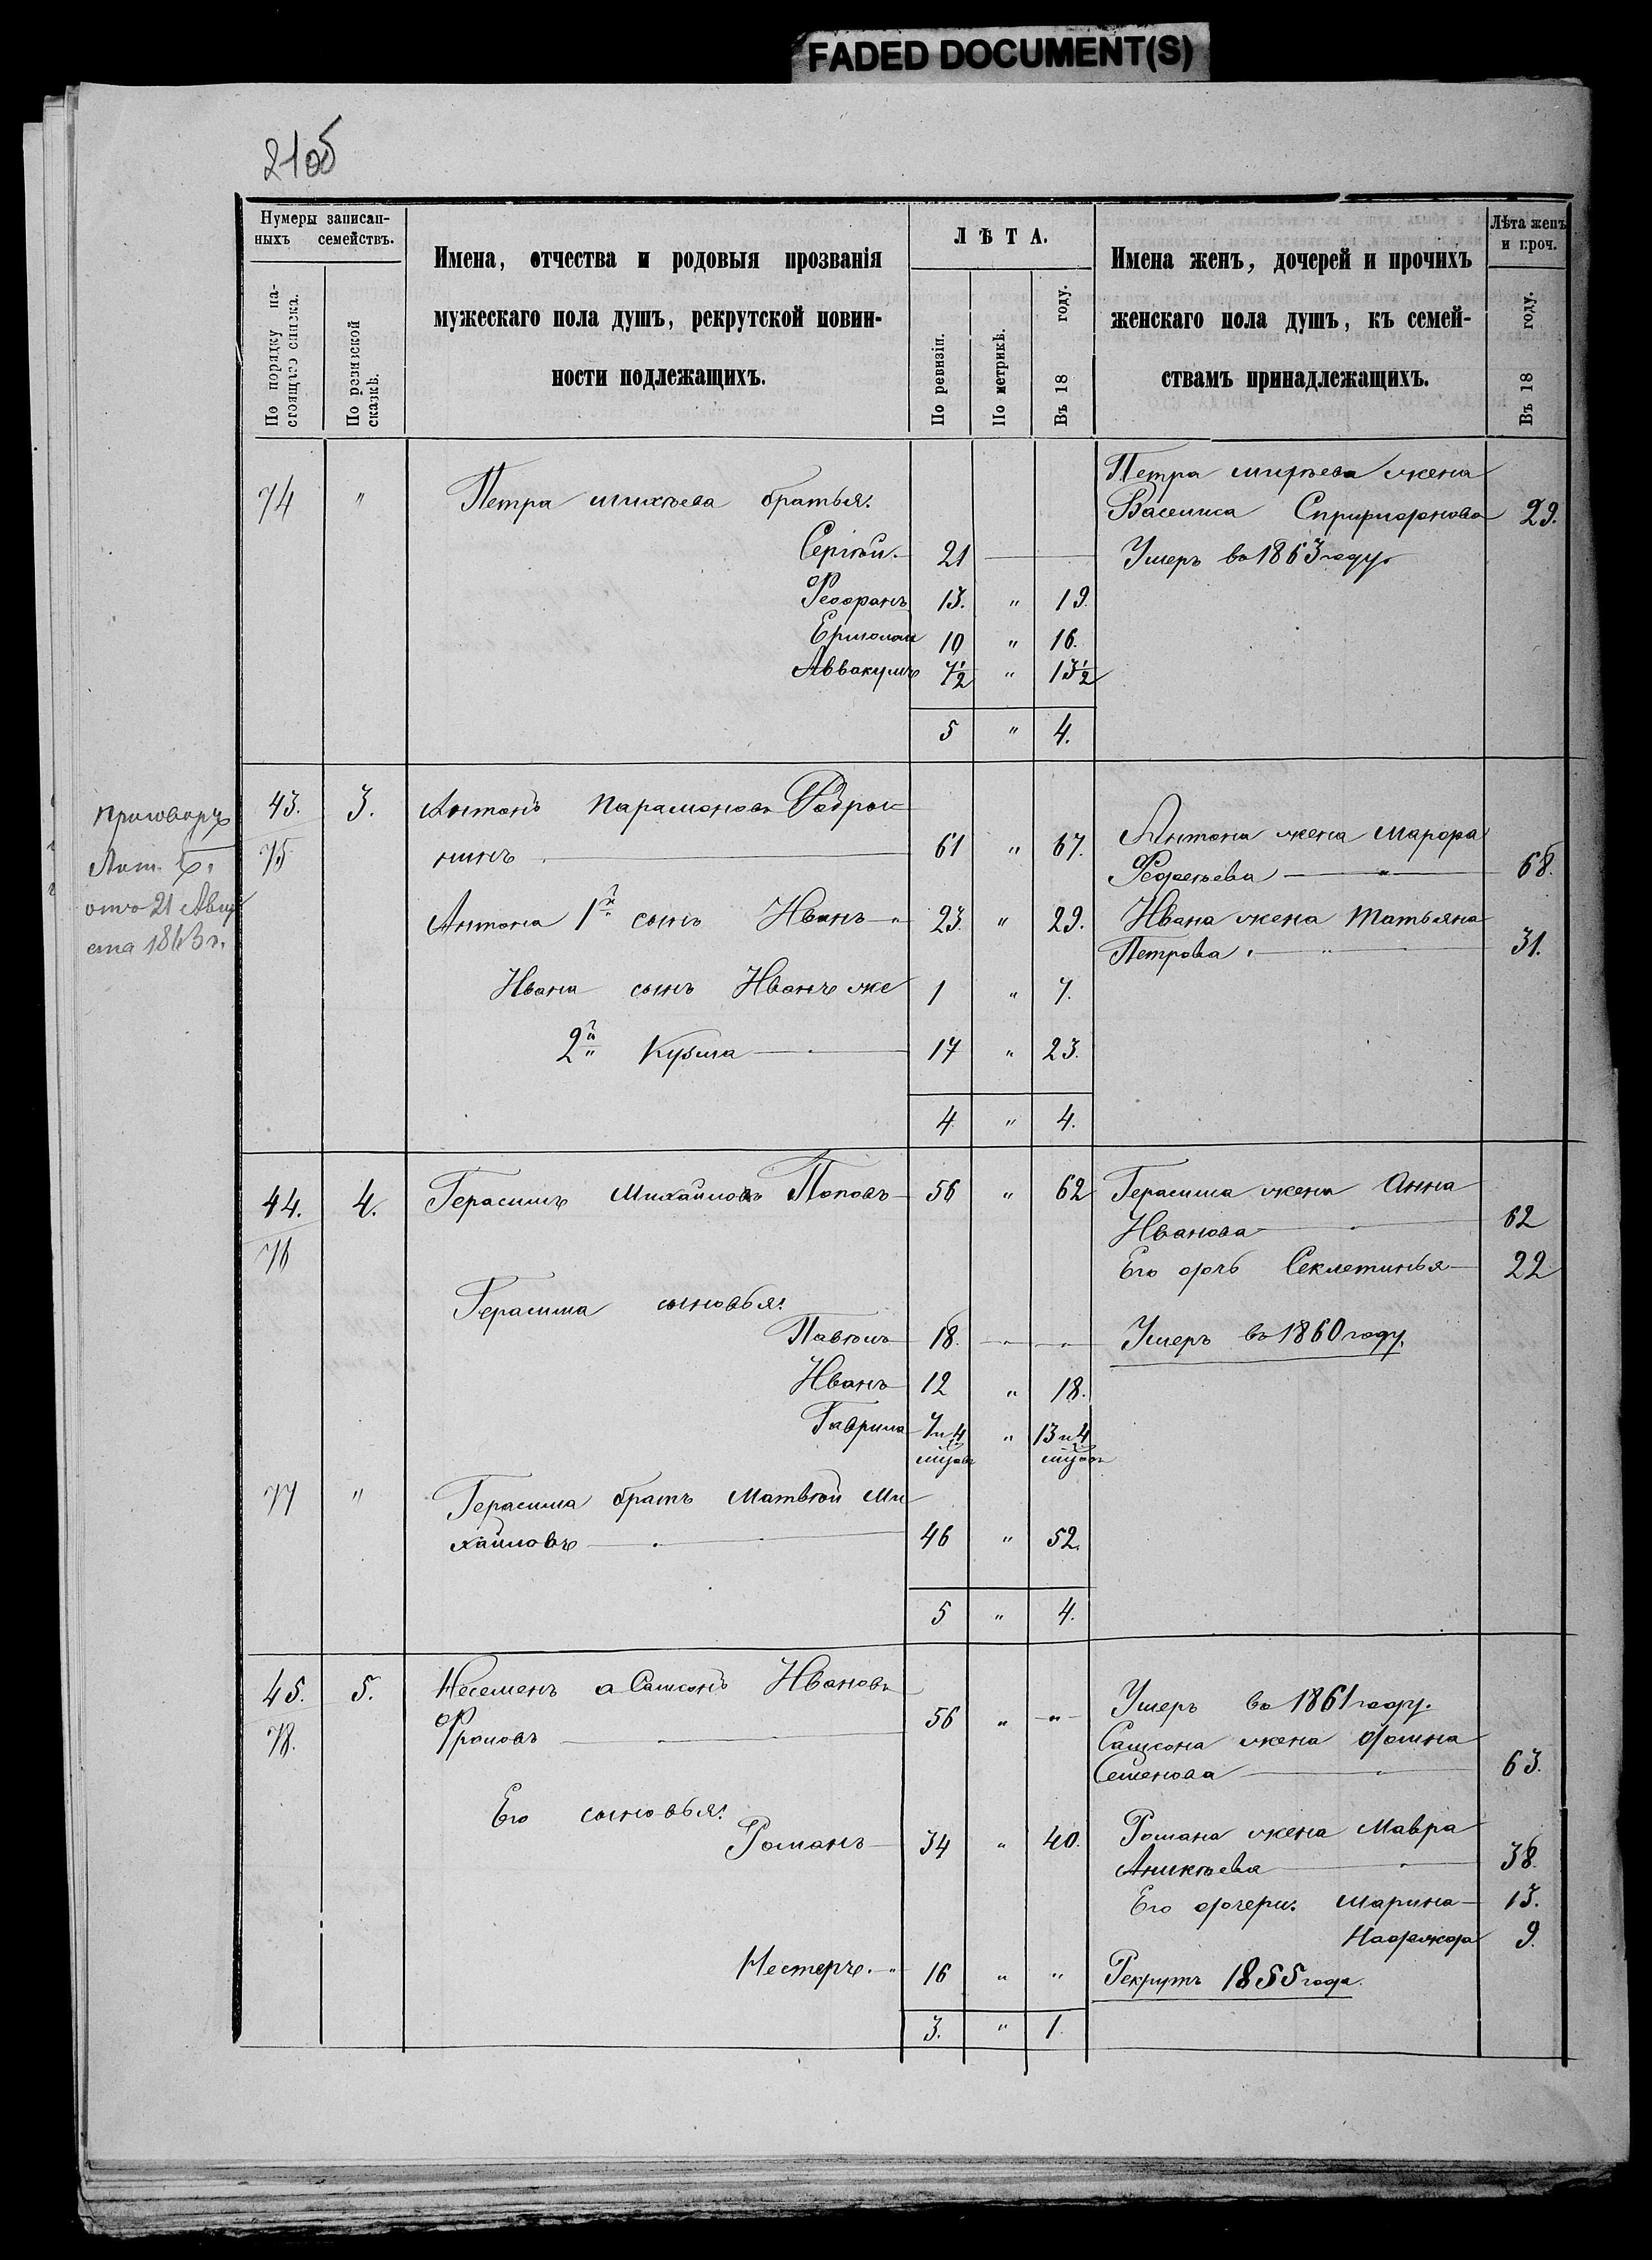 FADED DOCUMENT(S)
21об
Нумеры записан-
ныхъ семействъ.
По порядку на-
стоящаго списка.
По ревизской
сказкѣ.
Имена, отчества и родовыя прозванія
мужескаго пола душъ, рекрутской повин-
ности подлежащихъ.
ЛѢТА.
По ревизіи.
По метрикѣ.
Въ 18 году.
Имена женъ, дочерей и прочихъ
женскаго пола душъ, къ семей-
ствамъ принадлежащихъ.
Лѣта женъ
и проч.
Въ 18 году.
Петра жена
74 " Петра Михѣева братья:
Василиса 29.
Сергѣй. 21 Умеръ въ 1863 году
13. " 19.
Ермолай 10 " 16.
Аввакумъ 7½ " 13½
5 " 4.
приговоръ
43. 3. Антонъ Парамоновъ
75 нинъ 61 " 67. Антона жена Марфа
68.
отъ 21 Авгу
ста 1863 г.
Антона 1й сынъ Иванъ " 23. " 29. Ивана жена Татьяна
Петрова. " 31.
Ивана сынъ Иванъ же 1 " 7.
2й Кузма 17 " 23.
4 " 4.
44. 4. Герасимъ Михайловъ Поповъ 56 " 62 Герасима жена Анна
76 Иванова 62
Его дочь Секлетинья 22
Герасима сыновья:
Павелъ 18. Умеръ въ 1860 году.
Иванъ 12 " 18.
Гаврила 7 и 4 " 13 и 4
77 " Герасима братъ Матвѣй Ми
хайловъ 46 " 52.
5 " 4.
45. 5. а Самсонъ Ивановъ
78. Фроловъ 56 " " Умеръ въ 1861 году.
Самсона жена
Семенова 63.
Его сыновья:
Романъ 34 " 40. Романа жена Мавра
Аникѣева 38.
Его дочери: Марина 13.
Надежда 9.
Нестеръ. " 16 " " Рекрутъ 1855 года.
3. " 1.